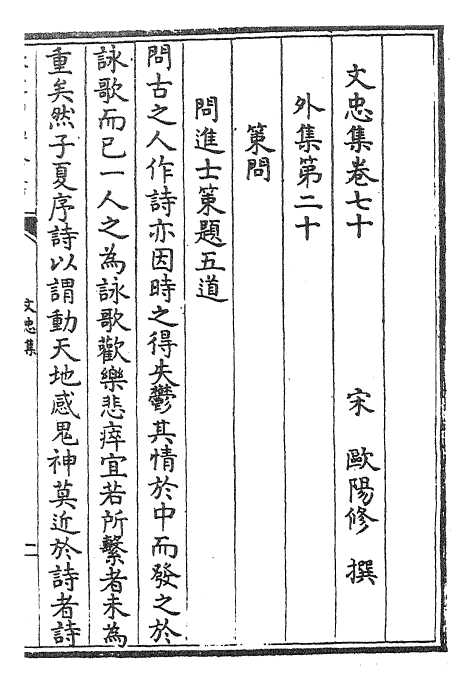 文忠集卷七十　　　宋　歐陽修　撰
外集第二十
策問
問進士策題五道
問古之人作詩亦因時之得失鬱其情於中而發之於
詠歌而已一人之為詠歌歡樂悲瘁宜若所繫者未為
重矣然子夏序詩以謂動天地感鬼神莫近於詩者詩
文忠集
二